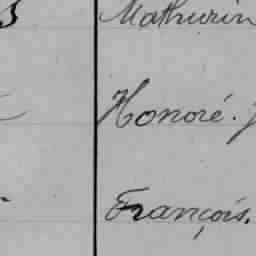 Mathurin
Honoré.
François.